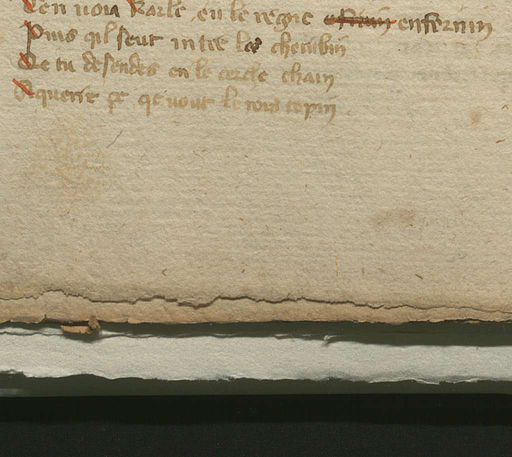 en voia karle en le regne enfernin
Puis qil seut intre les cherubin
De tu desendes en le cercle chain
Aquerre qe vout le roid pepin